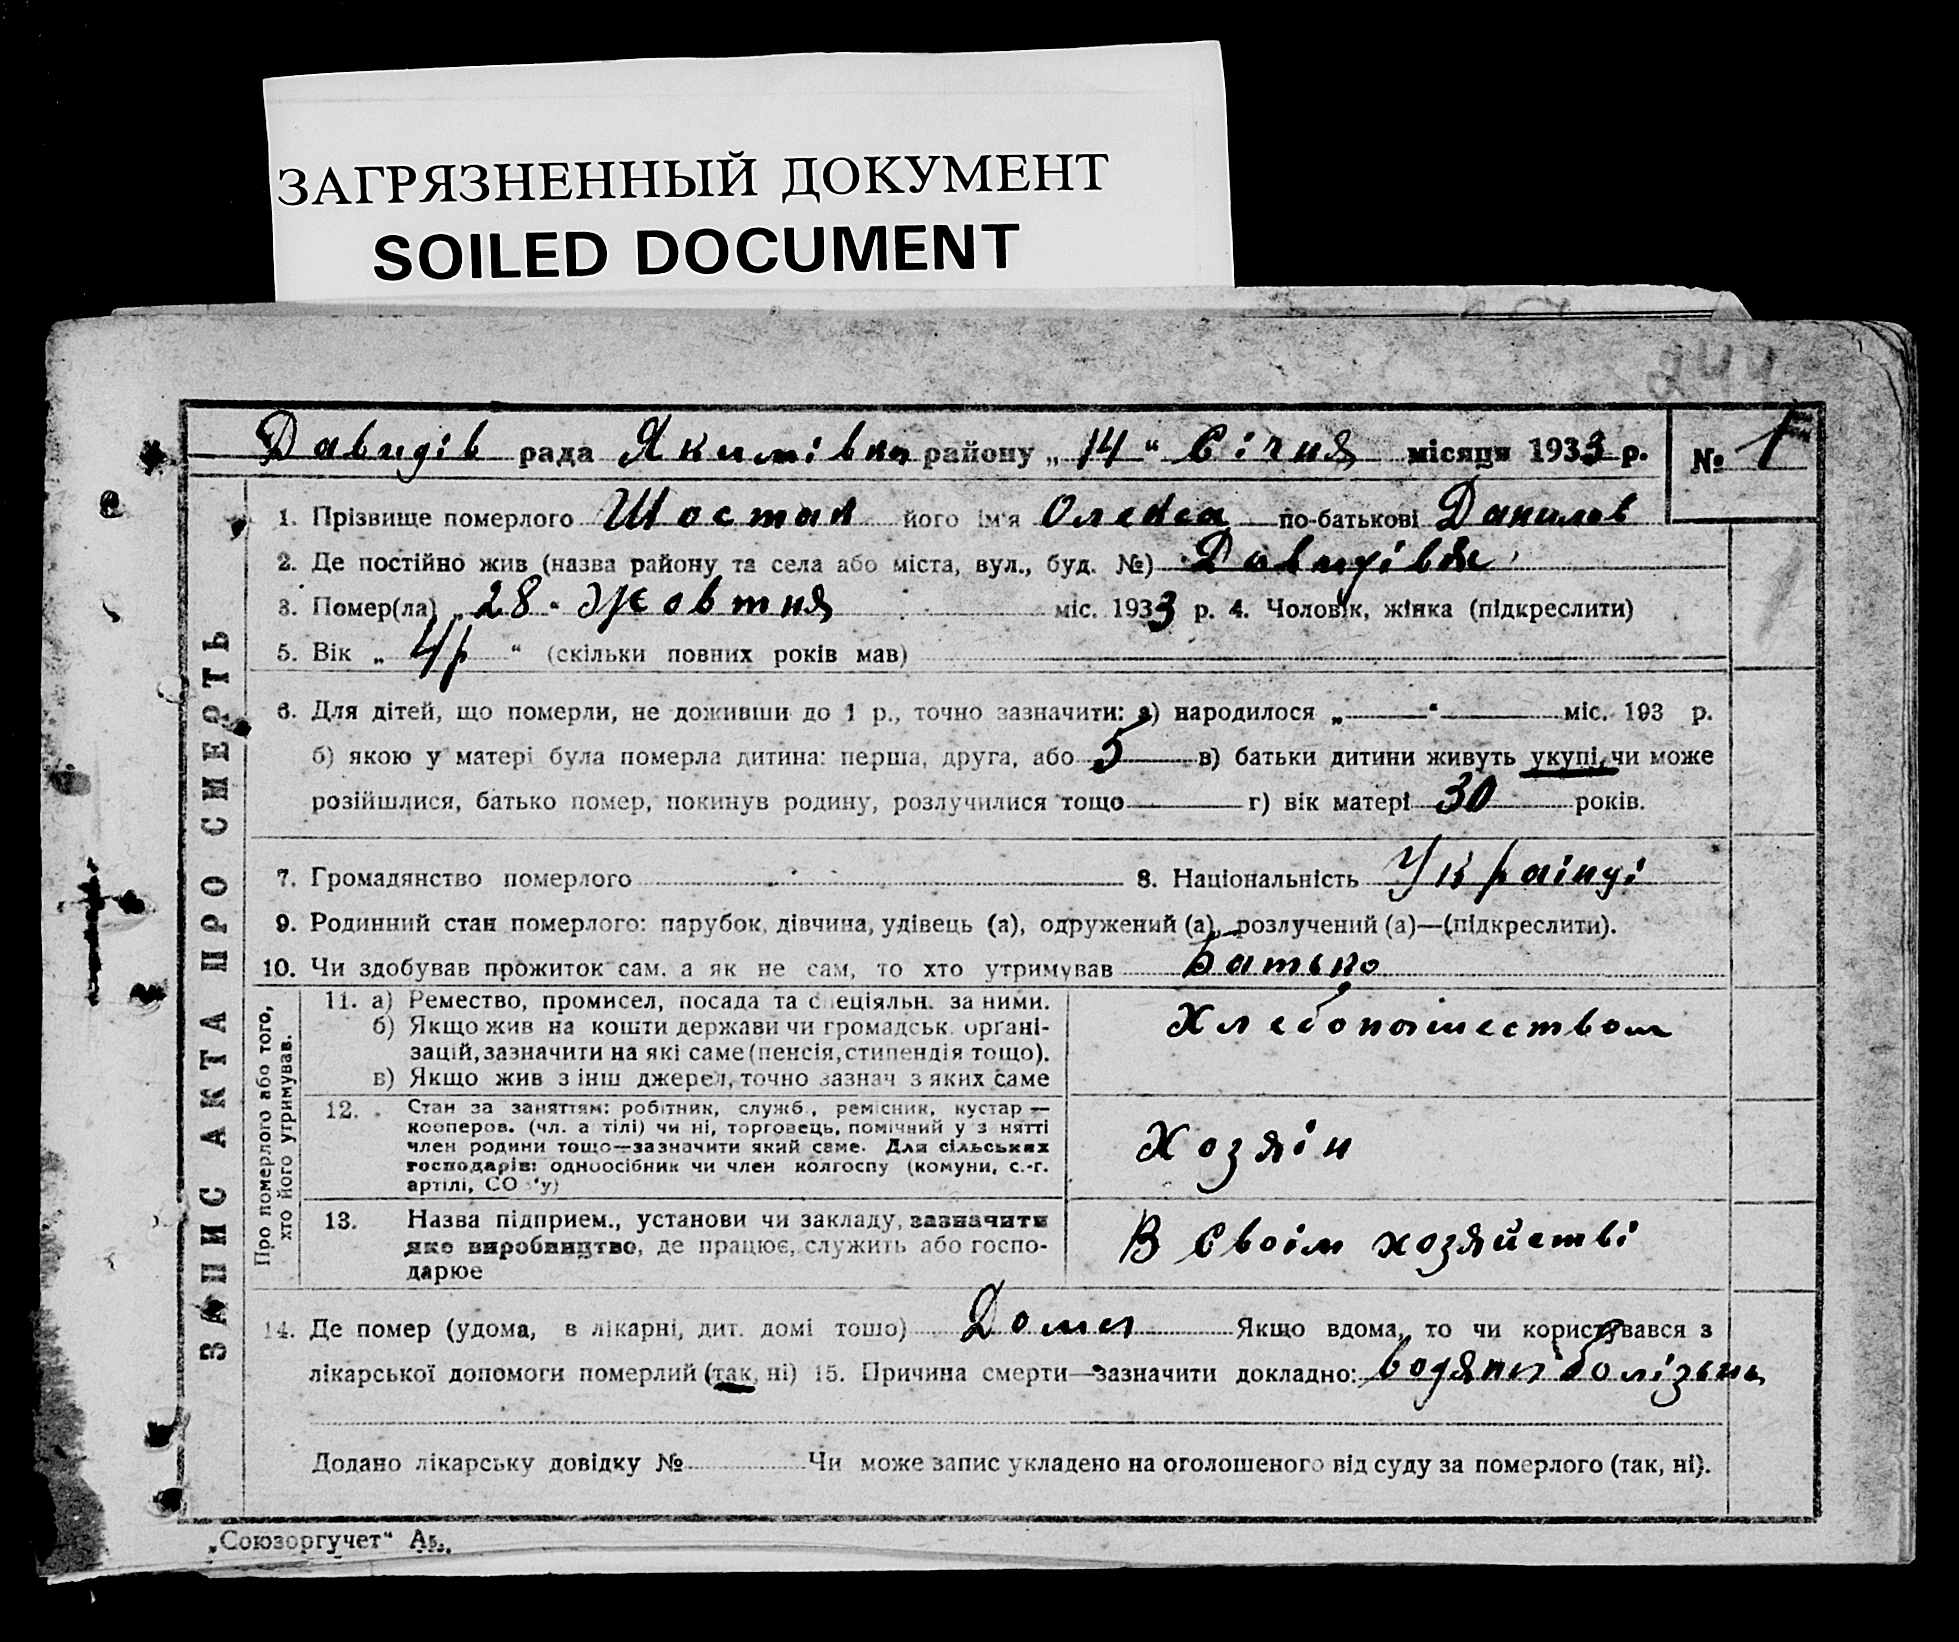 ЗАГРЯЗНЕННЫЙ ДОКУМЕНТ
SOILED DOCUMENT
Давидів рада Якимівка району „14“ Січня місяця 1933 р. № 1
ЗАПИС АКТА ПРО СМЕРТЬ
1. Прізвище померлого Шостак його ім'я Олекса по-батькові Данилов
2. Де постійно жив (назва району та села або міста, вул., буд. №) Давидівка
3. Помер(ла) „28“ Жовтня міс. 1933 р. 4. Чоловік, жінка (підкреслити)
5. Вік „4р“ (скільки повних років мав)
6. Для дітей, що померли, не доживши до 1 р., точно зазначити: а) народилося „ “ міс. 193 р.
б) якою у матері була померла дитина: перша, друга, або 5 в) батьки дитини живуть укупі, чи може
розійшлися, батько помер, покинув родину, розлучилися тощо г) вік матері 30 років.
7. Громадянство померлого 8. Національність Українці
9. Родинний стан померлого: парубок, дівчина, удівець (а), одружений (а), розлучений (а)—(підкреслити).
10. Чи здобував прожиток сам, а як не сам, то хто утримував Батько
Про померлого або того,
хто його утримував.
11. а) Ремество, промисел, посада та спеціяльн. за ними.
б) Якщо жив на кошти держави чи громадськ. органі-
зацій, зазначити на які саме (пенсія, стипендія тощо).
в) Якщо жив з інш джерел, точно зазнач з яких саме
Хлебопашеством
12. Стан за заняттям: робітник, служб., ремісник, кустар —
кооперов. (чл. а тілі) чи ні, торговець, помічний у з нятті
член родини тощо—зазначити який саме. Для сільських
господарів: одноосібник чи член колгоспу (комуни, с.-г.
артілі, СО 'у)
Хозяін
13. Назва підприєм., установи чи закладу, зазначити
яке виробництво, де працює, служить або госпо-
дарює
В своім хозяйстві
14. Де помер (удома, в лікарні, дит. домі тощо) Дома Якщо вдома, то чи користувався з
лікарської допомоги померлий (так, ні) 15. Причина смерти—зазначити докладно: водяна болізьнь
Додано лікарську довідку № Чи може запис укладено на оголошеного від суду за померлого (так, ні).
„Союзоргучет“